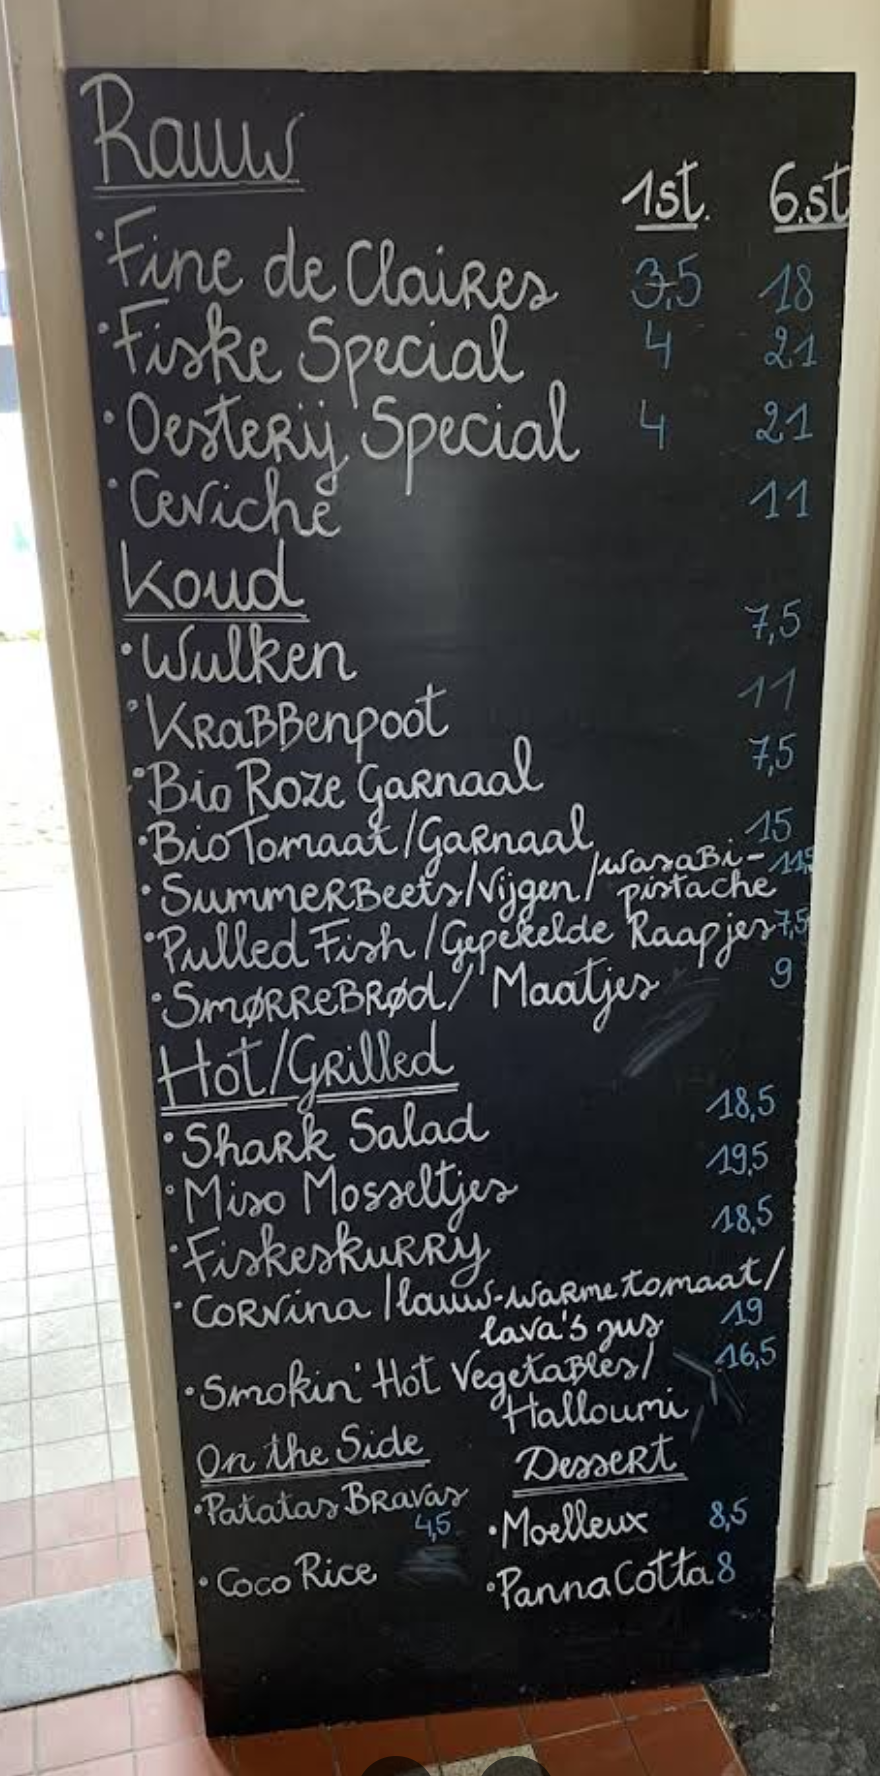 Rauw
1st. 6.st
·Fine de Claires 3,5 18
·Fiske Special 4 21
·Oesterij Special 4 21
·Ceviche 11
Koud
·Wulken 7,5
·Krabbenpoot 11
·Bio Roze Garnaal 7,5
·Bio Tomaat/Garnaal 15
·SummerBeets/Vijgen/wasabi- 11,5
pistache
·Pulled Fish/Gepekelde Raapjes 7,5
·Smørrebrød/Maatjes 9
Hot/Grilled
·Shark Salad 18,5
·Miso Mosseltjes 19,5
·Fiskeskurry 18,5
·Corvina/lauw-warme tomaat/
lava's jus 19
·Smokin' Hot Vegetables/ 16,5
Halloumi
On the Side
·Patatas Bravas
4,5
·Coco Rice
Dessert
·Moelleux 8,5
·Panna Cotta 8